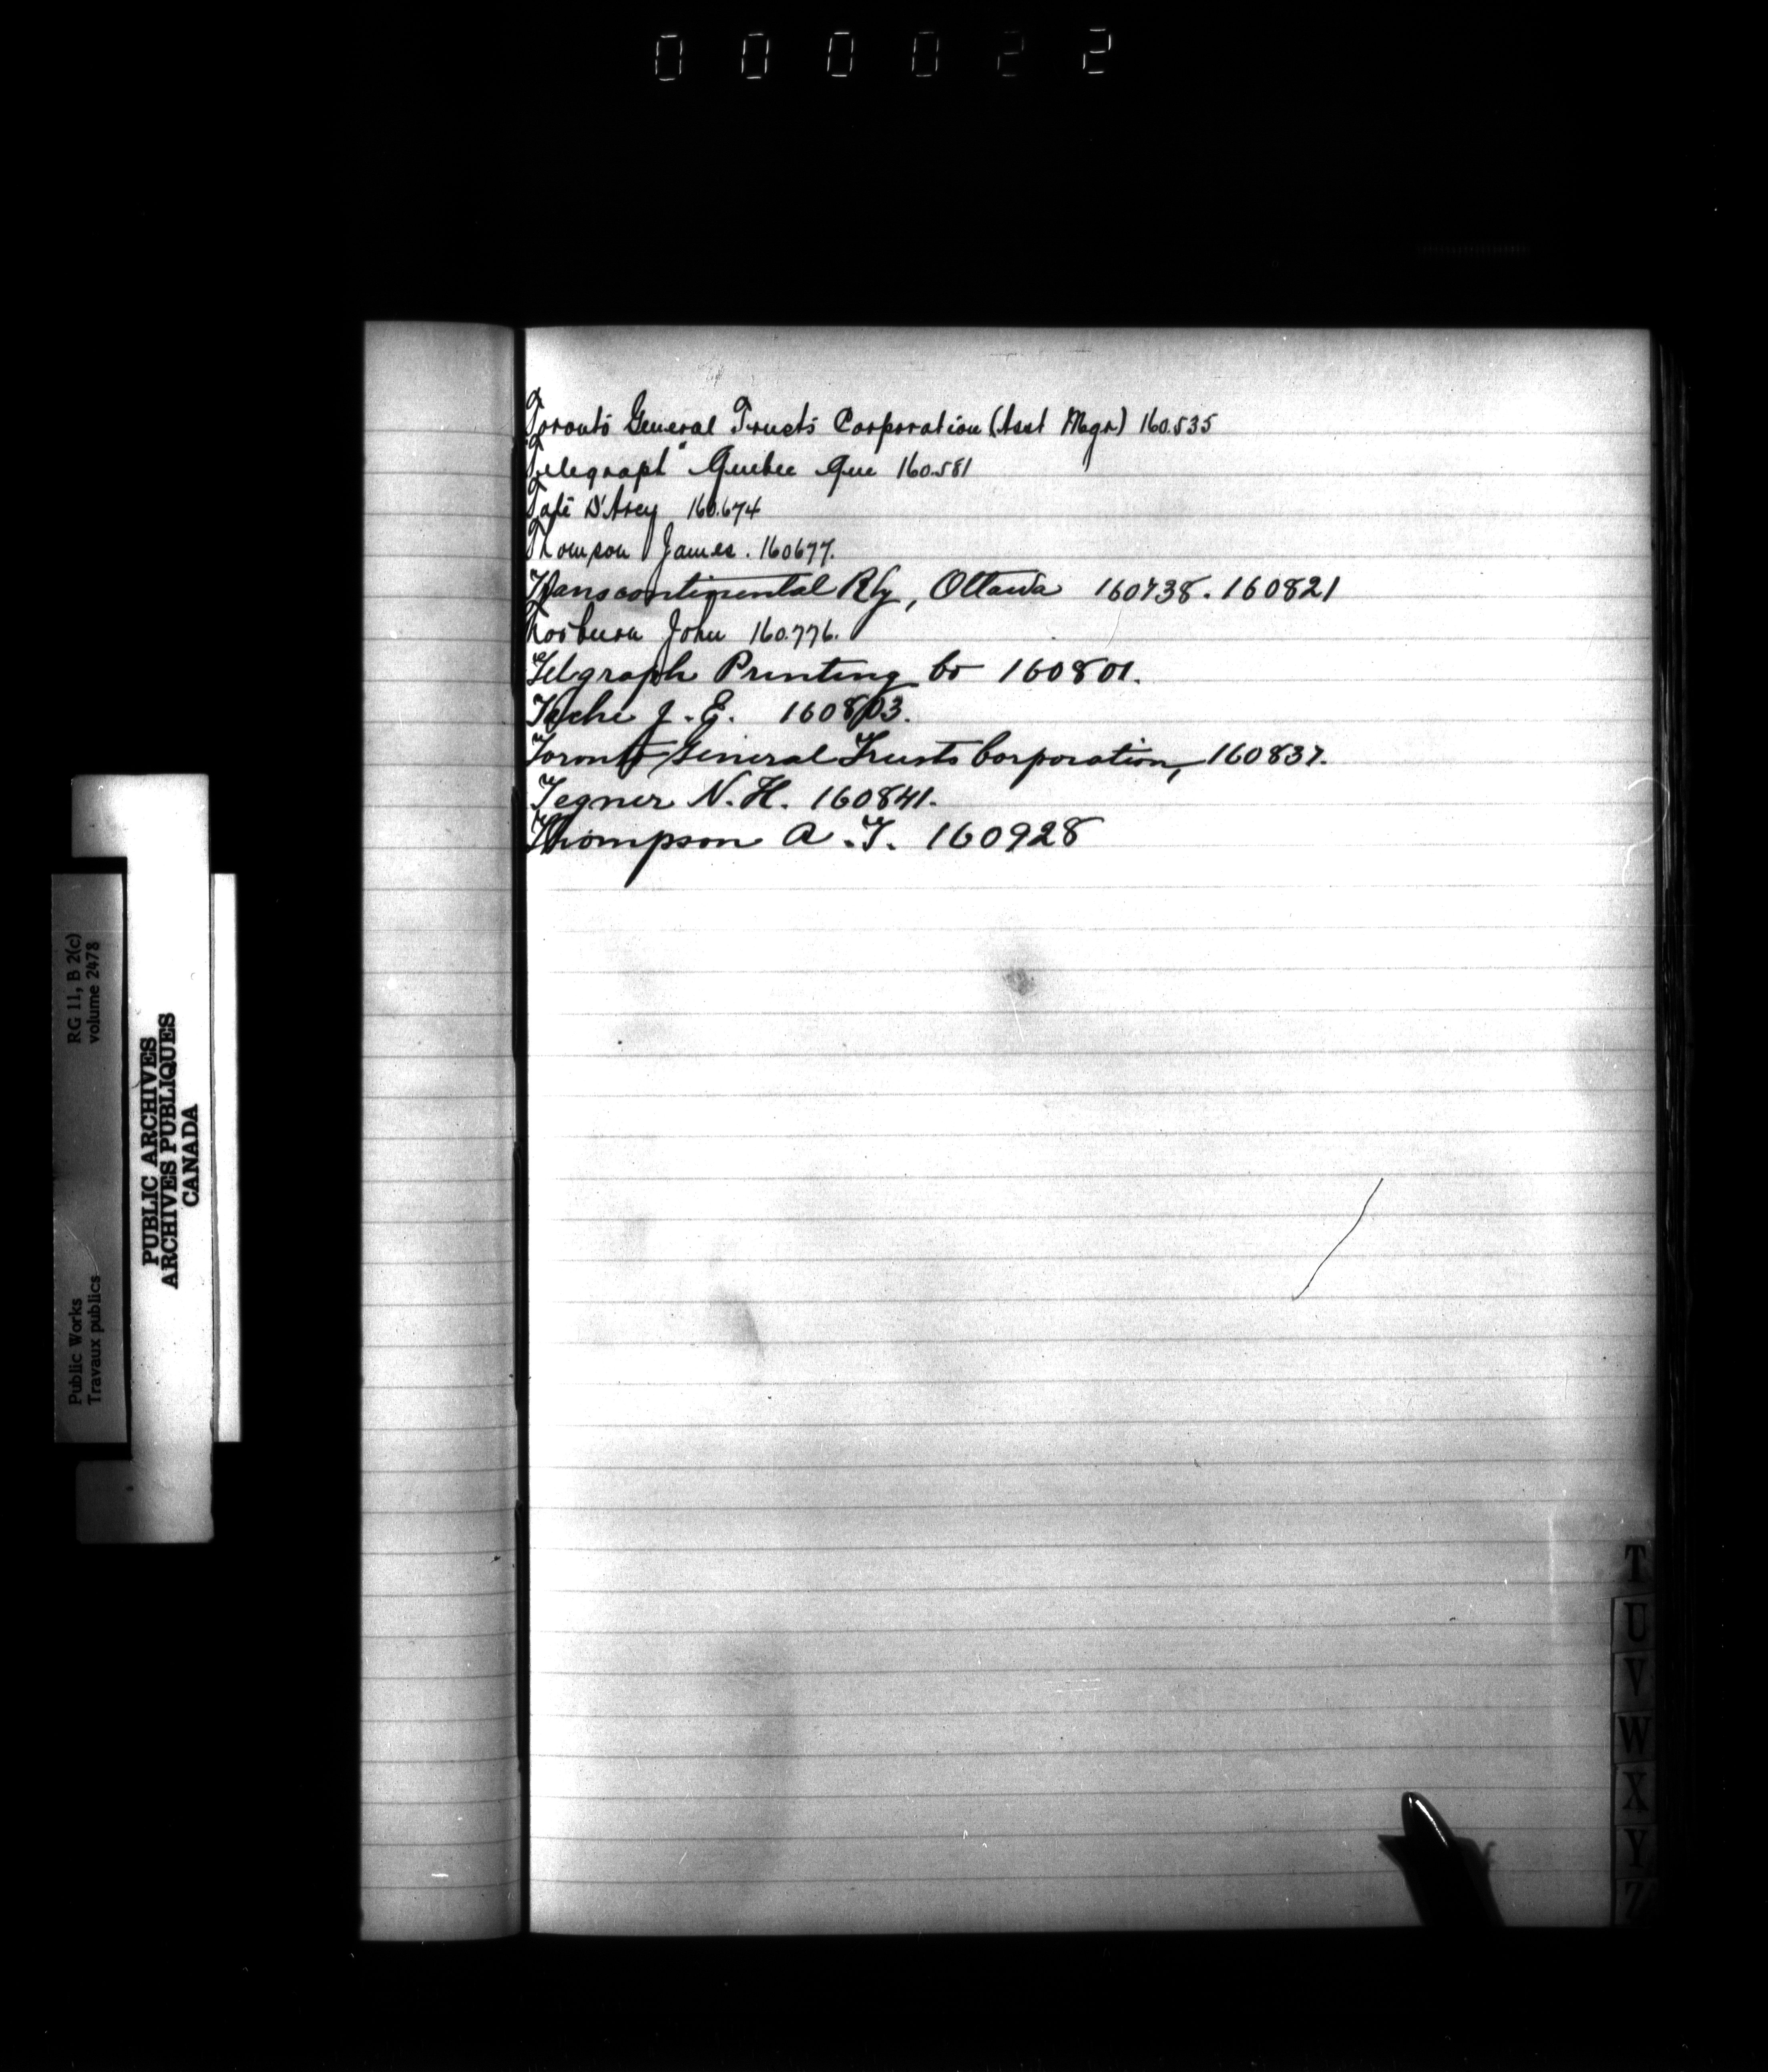 000022
Toronto General Trusts Corporation (Asst Mgr) 160.535
Telegraph" Quebec Que 160.581
Tate D'Arcy 160.674
Thompson James. 160677.
Transcontinental Rly, Ottawa 160738. 160821
John 160.776.
Telgraph Printing Co 160801.
Tache J. E. 160803.
Toronto General Trusts Corporation, 160837.
Tegner N. H. 160841.
Thompson A. T. 160928
RG 11, B 2(c)
volume 2478
Public Works
Travaux publics
PUBLIC ARCHIVES
ARCHIVES PUBLIQUES
CANADA
T
U
V
W
X
Y
Z